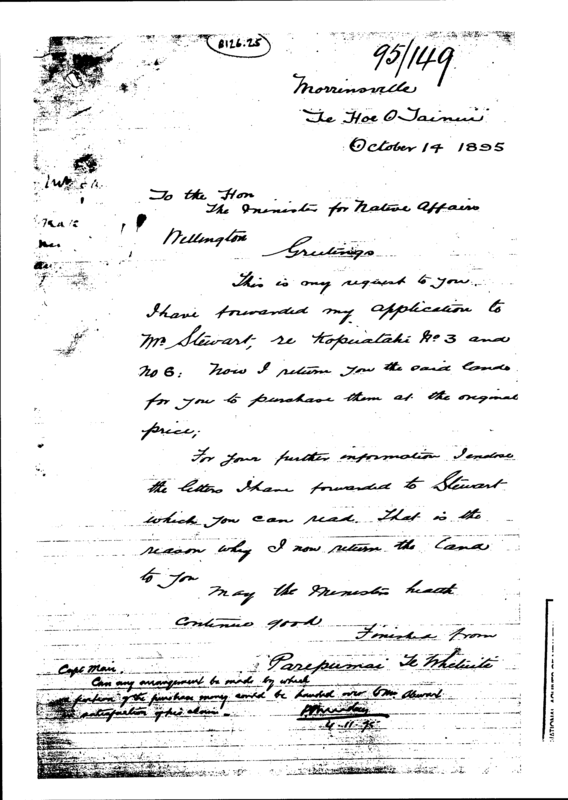 B126.25
95/149
Morrinsville
Te Hoe O Tainui
October 14 1895
To the Hon
The Minister for Native Affairs
Wellington
Greetings
This is my request to you.
I have forwarded my application to
Mr Stewart, re Kopuatahi No 3 and
No 6: Now I return you the said lands
for you to purchase them at the original
price;
For your further information I enclose
the letters I have forwarded to Stewart
which you can read. That is the
reason why I now return the land
to you
May the Ministers health
continue good
Finished from
Parepumai Te Whetuite
Capt Mair.
Can any arrangement be made by which
portion of the purchase money could be handed over to Mr Stewart
satisfaction of his claim.
4-11-95